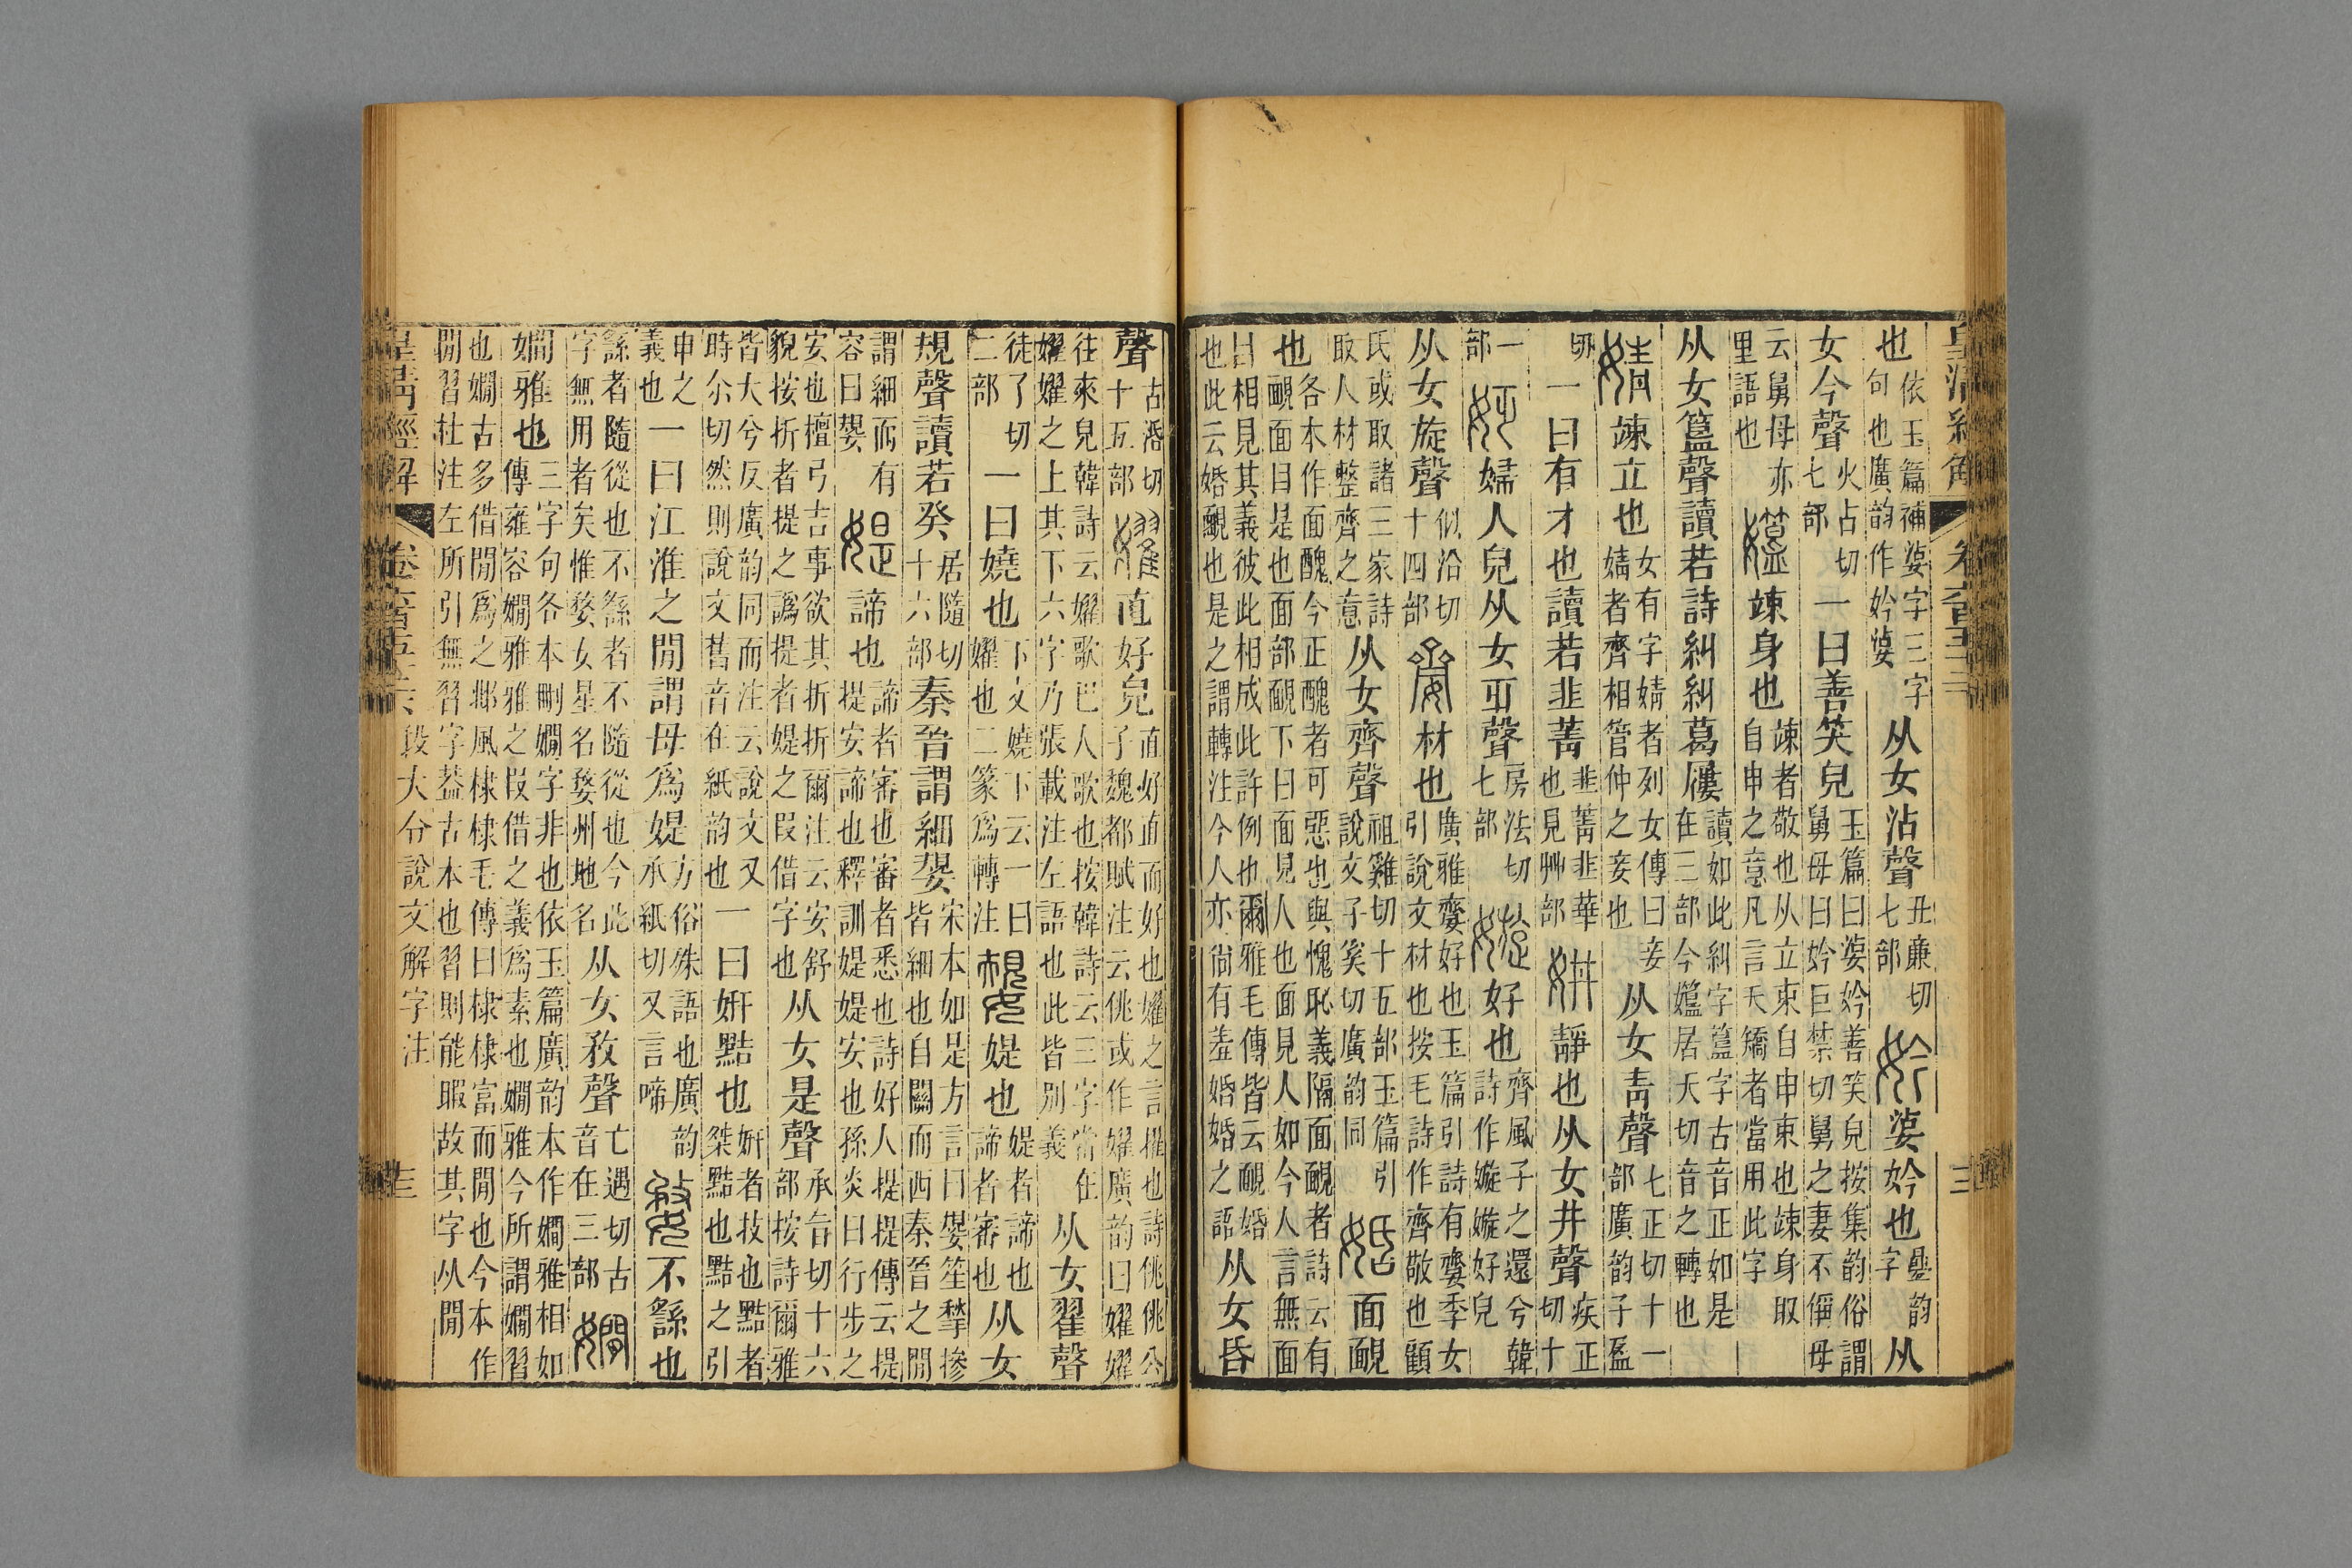 也依玉篇補字三字句也廣韵作妗从女沾聲丑廉切七部妗也㬪韵字从
女今聲火占切七部一曰善笑皃玉篇曰妗善笑皃按集韵俗謂舅母曰妗巨禁切舅之妻不偁母
云舅母亦里語也竦身也竦者敬也从立束自申束也竦身取自申之意凡言夭矯者當用此字
从女簋聲讀若詩糾糾葛屨讀如此糾字簋字古音正如是在三部今㜳居夭切音之轉也
婧竦立也女有字婧者列女傳曰妾婧者齊相管仲之妾也从女靑聲七正切十一部廣韵子盈
切一曰有才也讀若韭菁韭菁韭華也見艸部妌靜也从女井聲疾正切十
一部㛍婦人皃从女聲房法切七部嫙好也齊風子之還兮韓詩作嫙嫙好皃
从女旋聲似沿切十四部齌材也廣雅齌好也玉篇引詩有齌季女引說文材也按毛詩作齊敬也顧
氏或取諸三家詩取人材整齊之意从女齊聲祖雞切十五部玉篇引說文子奚切廣韵同姡面靦
也各本作面醜今正醜者可惡也與愧恥義隔面靦者詩云有靦面目是也面部靦下曰面見人也面見人如今人言無面
目相見其義彼此相成此許例也爾雅毛傳皆云靦姡也此云婚靦也是之謂轉注今人亦尙有羞婚婚之語从女昏
聲古活切十五部嬥直好皃直好直而好也嬥之言擢也詩佻佻公子魏都賦注云佻或作嬥廣韵曰嬥嬥
往來皃韓詩云嬥歌巴人歌也按韓詩云三字當在嬥嬥之上其下六字乃張載注左語也此皆別義从女翟聲
徒了切二部一曰嬈也下文嬈下云一曰嬥也二篆爲轉注嫢媞也媞者諦也諦者審也从女
規聲讀若癸居隨切十六部秦晉謂細嫢宋本如是方言曰嫢笙揫摻皆細也自關而西秦晉之閒
謂細而有容曰嫢媞諦也諦者審也審者悉也詩好人提提傳云提提安諦也釋訓媞媞安也孫炎曰行步之
安也檀弓吉事欲其折折爾注云安舒貌按折者提之譌提者媞之叚借字也从女是聲承旨切十六部按詩爾雅
皆大兮反廣韵同而注云說文又時尒切然則說文舊音在紙韵也一曰姸黠也姸者技也黠者桀黠也黠之引
申之義也一曰江淮之閒謂母爲媞方俗殊語也廣韵承紙切又言啼婺不繇也
繇者隨從也不繇者不隨從也今此字無用者矣惟婺女星名婺州地名从女敄聲亡遇切古音在三部嫺
嫺雅也三字句各本刪嫺字非也依玉篇廣韵本作嫺雅相如傳雍容嫺雅雅之叚借之義爲素也嫺雅今所謂嫺習
也嫺古多借閒爲之邶風棣棣毛傳曰棣棣富而閒也今本作閒習杜注左所引無習字葢古本也習則能暇故其字从閒
皇淸經解 卷六百五十六 段大令說文解字注 十三